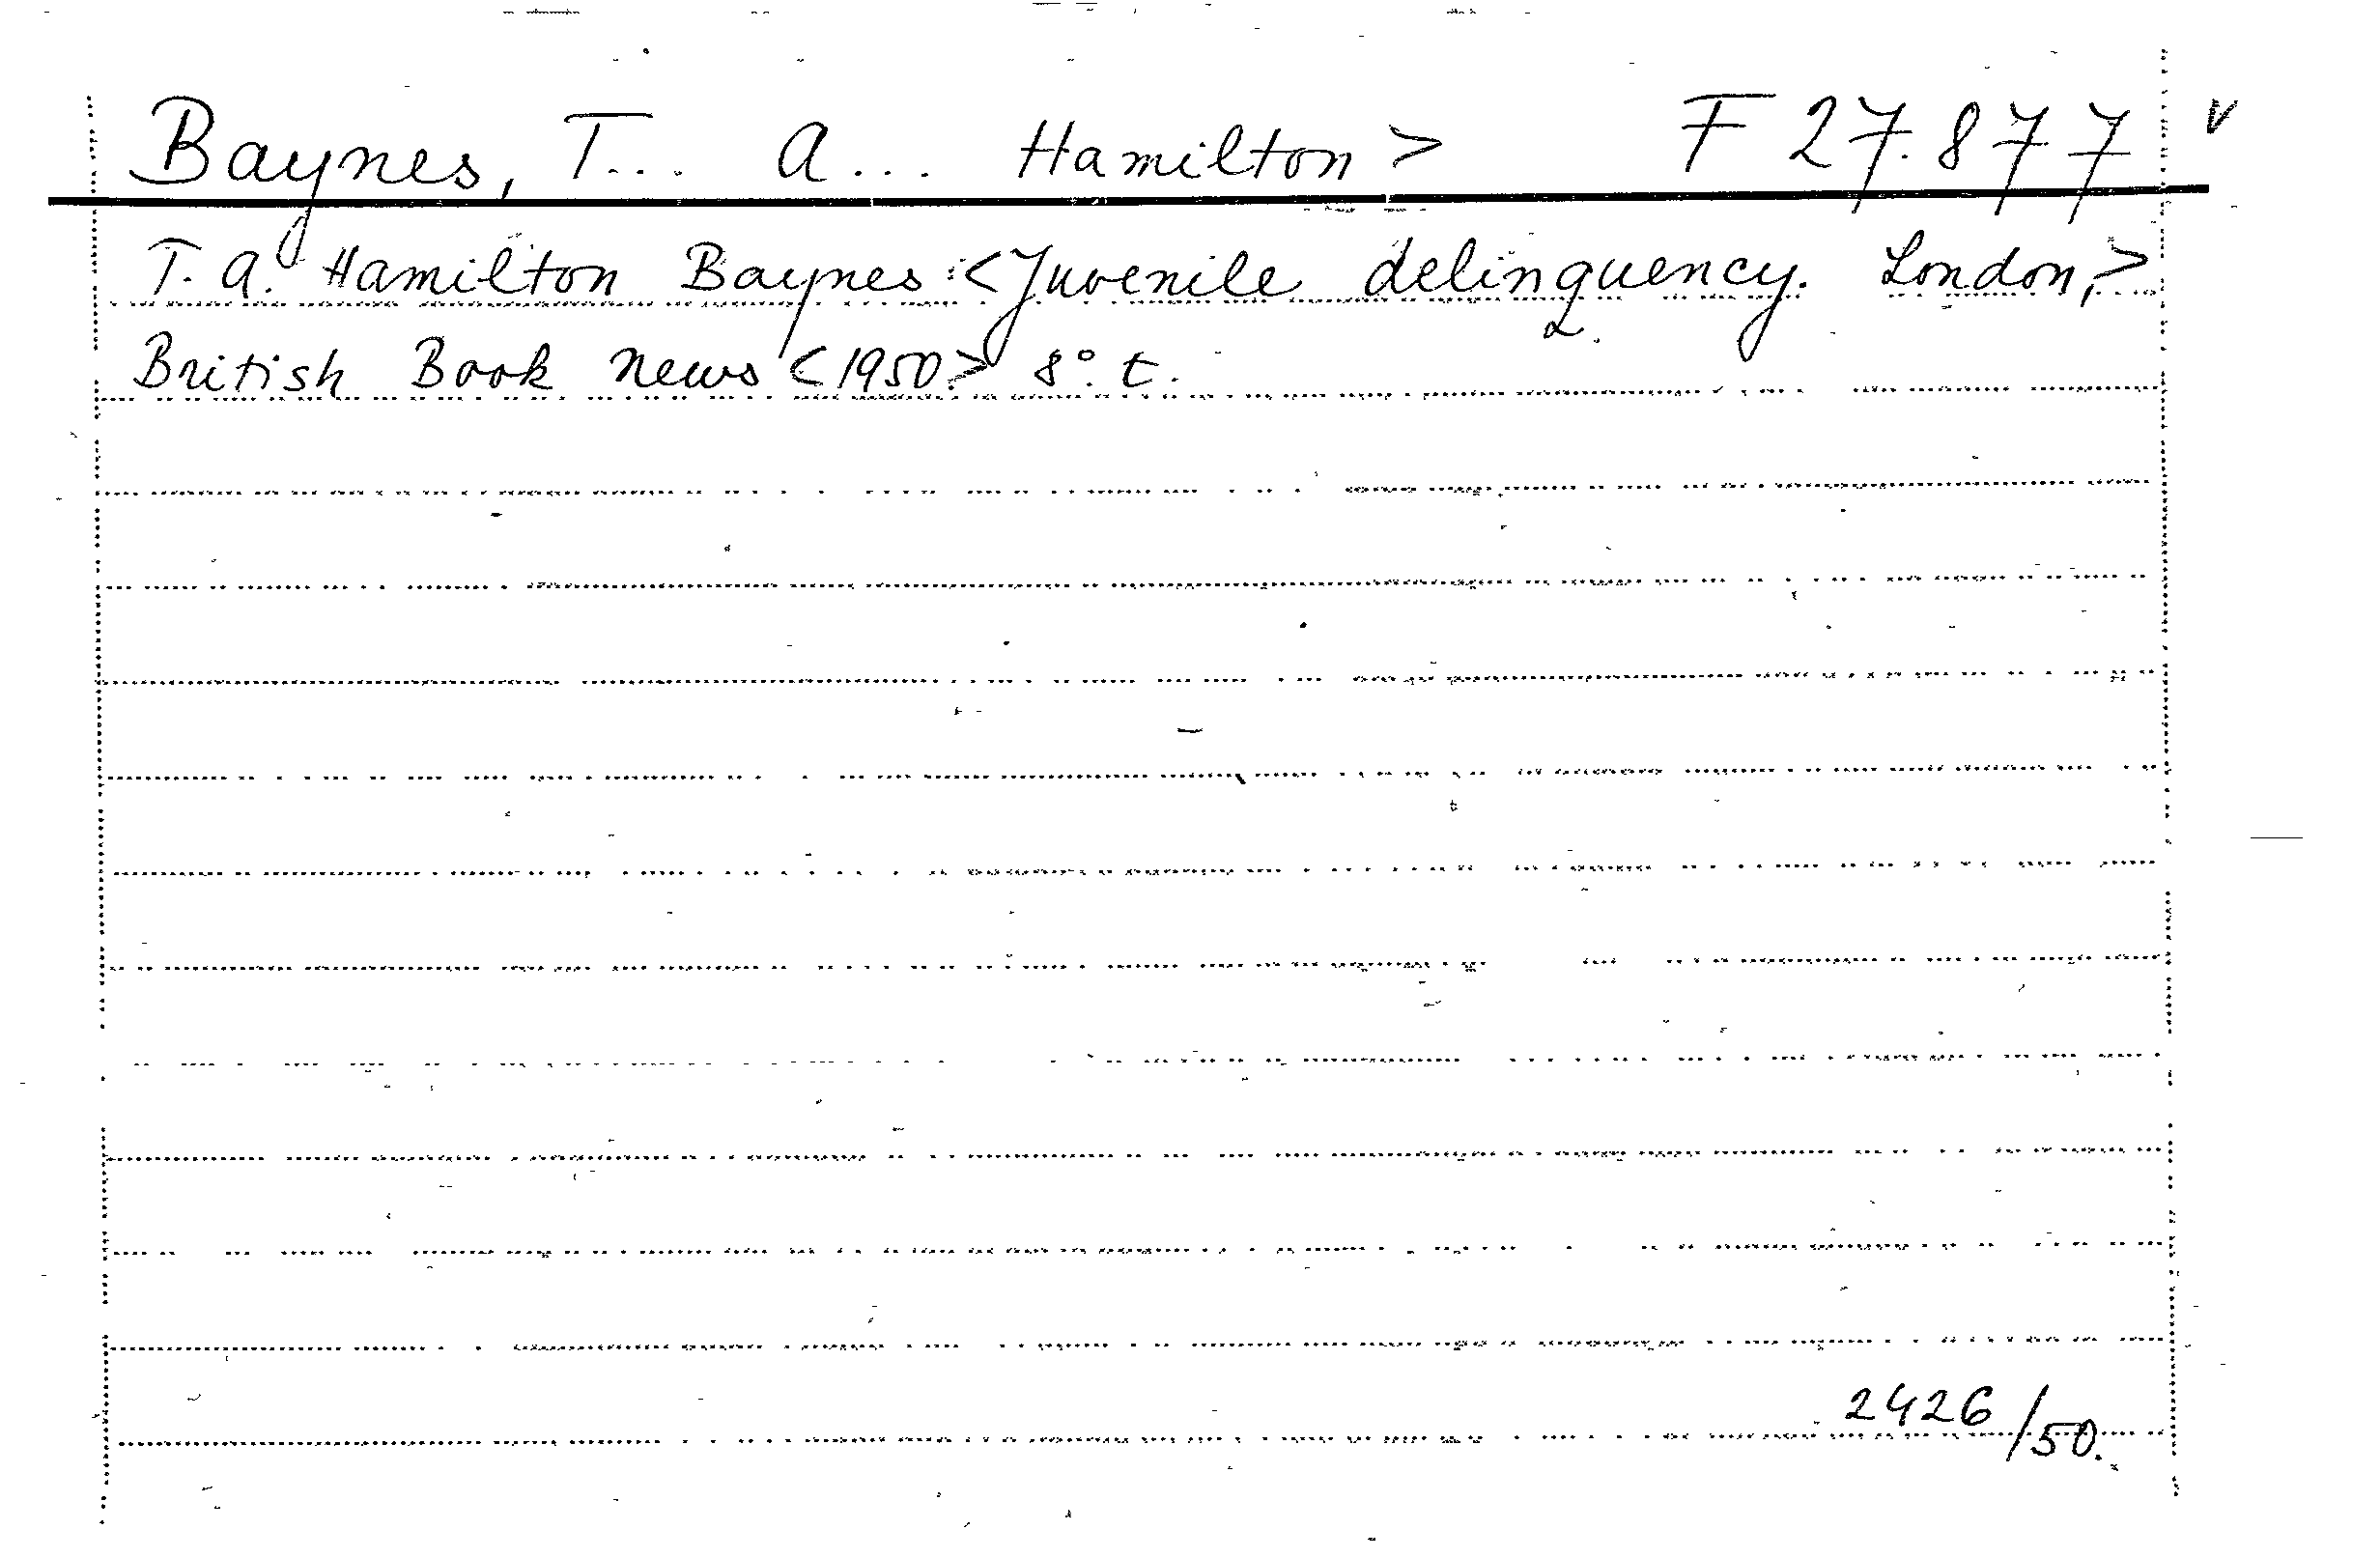 Baynes, T... A... Hamilton > F 27.877 v
T. A. Hamilton Baynes: <Juvenile delinquency. London,>
British Book News <1950.> 8°. t.
2426/50.